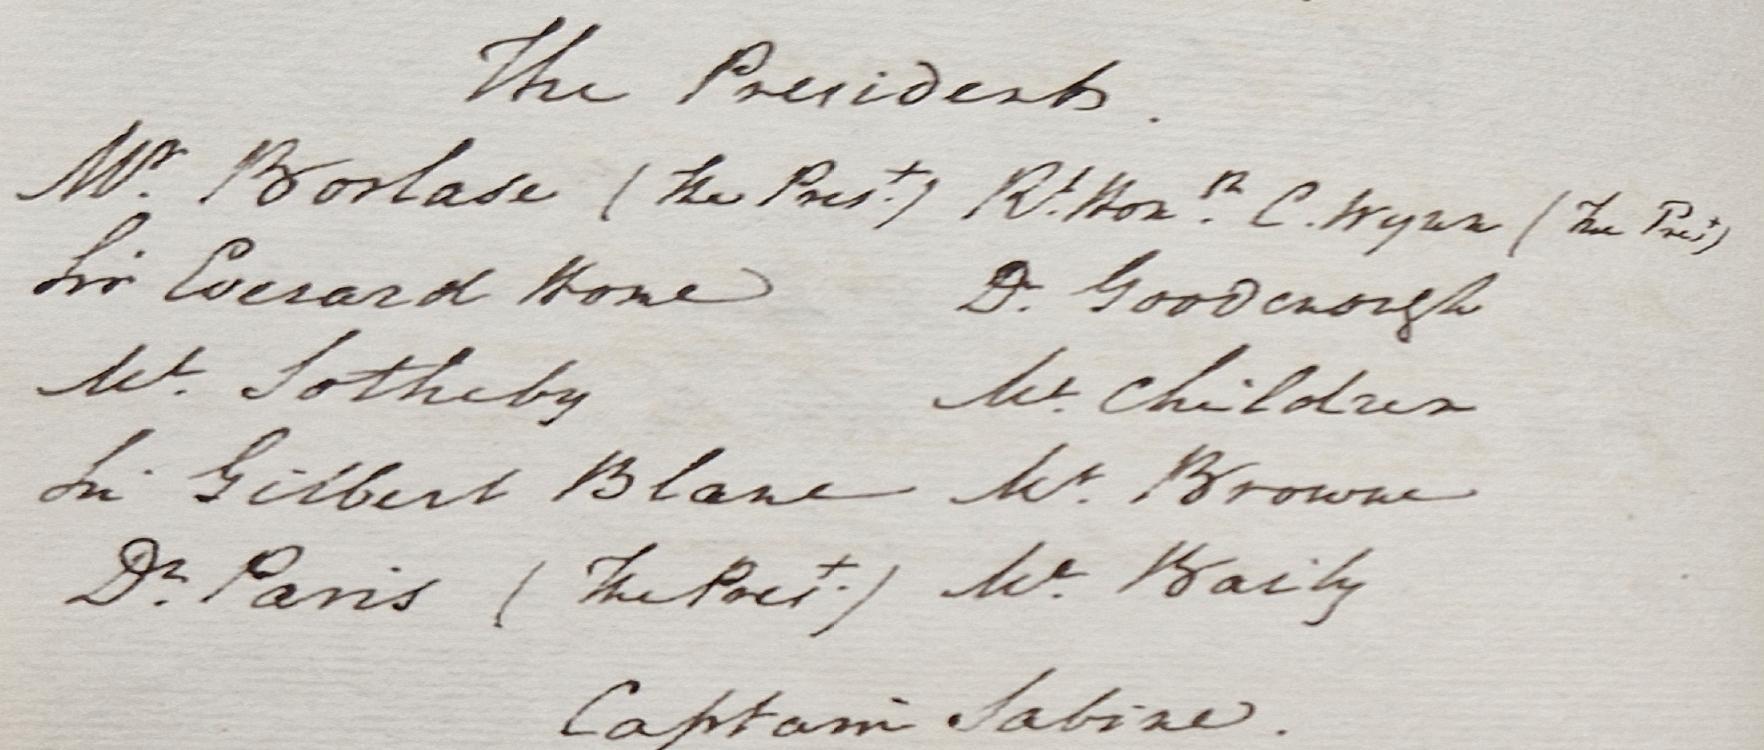 The Presidents.
Mr. Borlase (The Prest.) Rt. Honble. C. Wynn (The Prest)
Sir Everard Home Dr. Goodenough
Mr. Sotheby Mr. Children
Sir Gilbert Blane Mr. Browne
Dr. Paris (The Prest.) Mr. Baily
Captain Sabine.